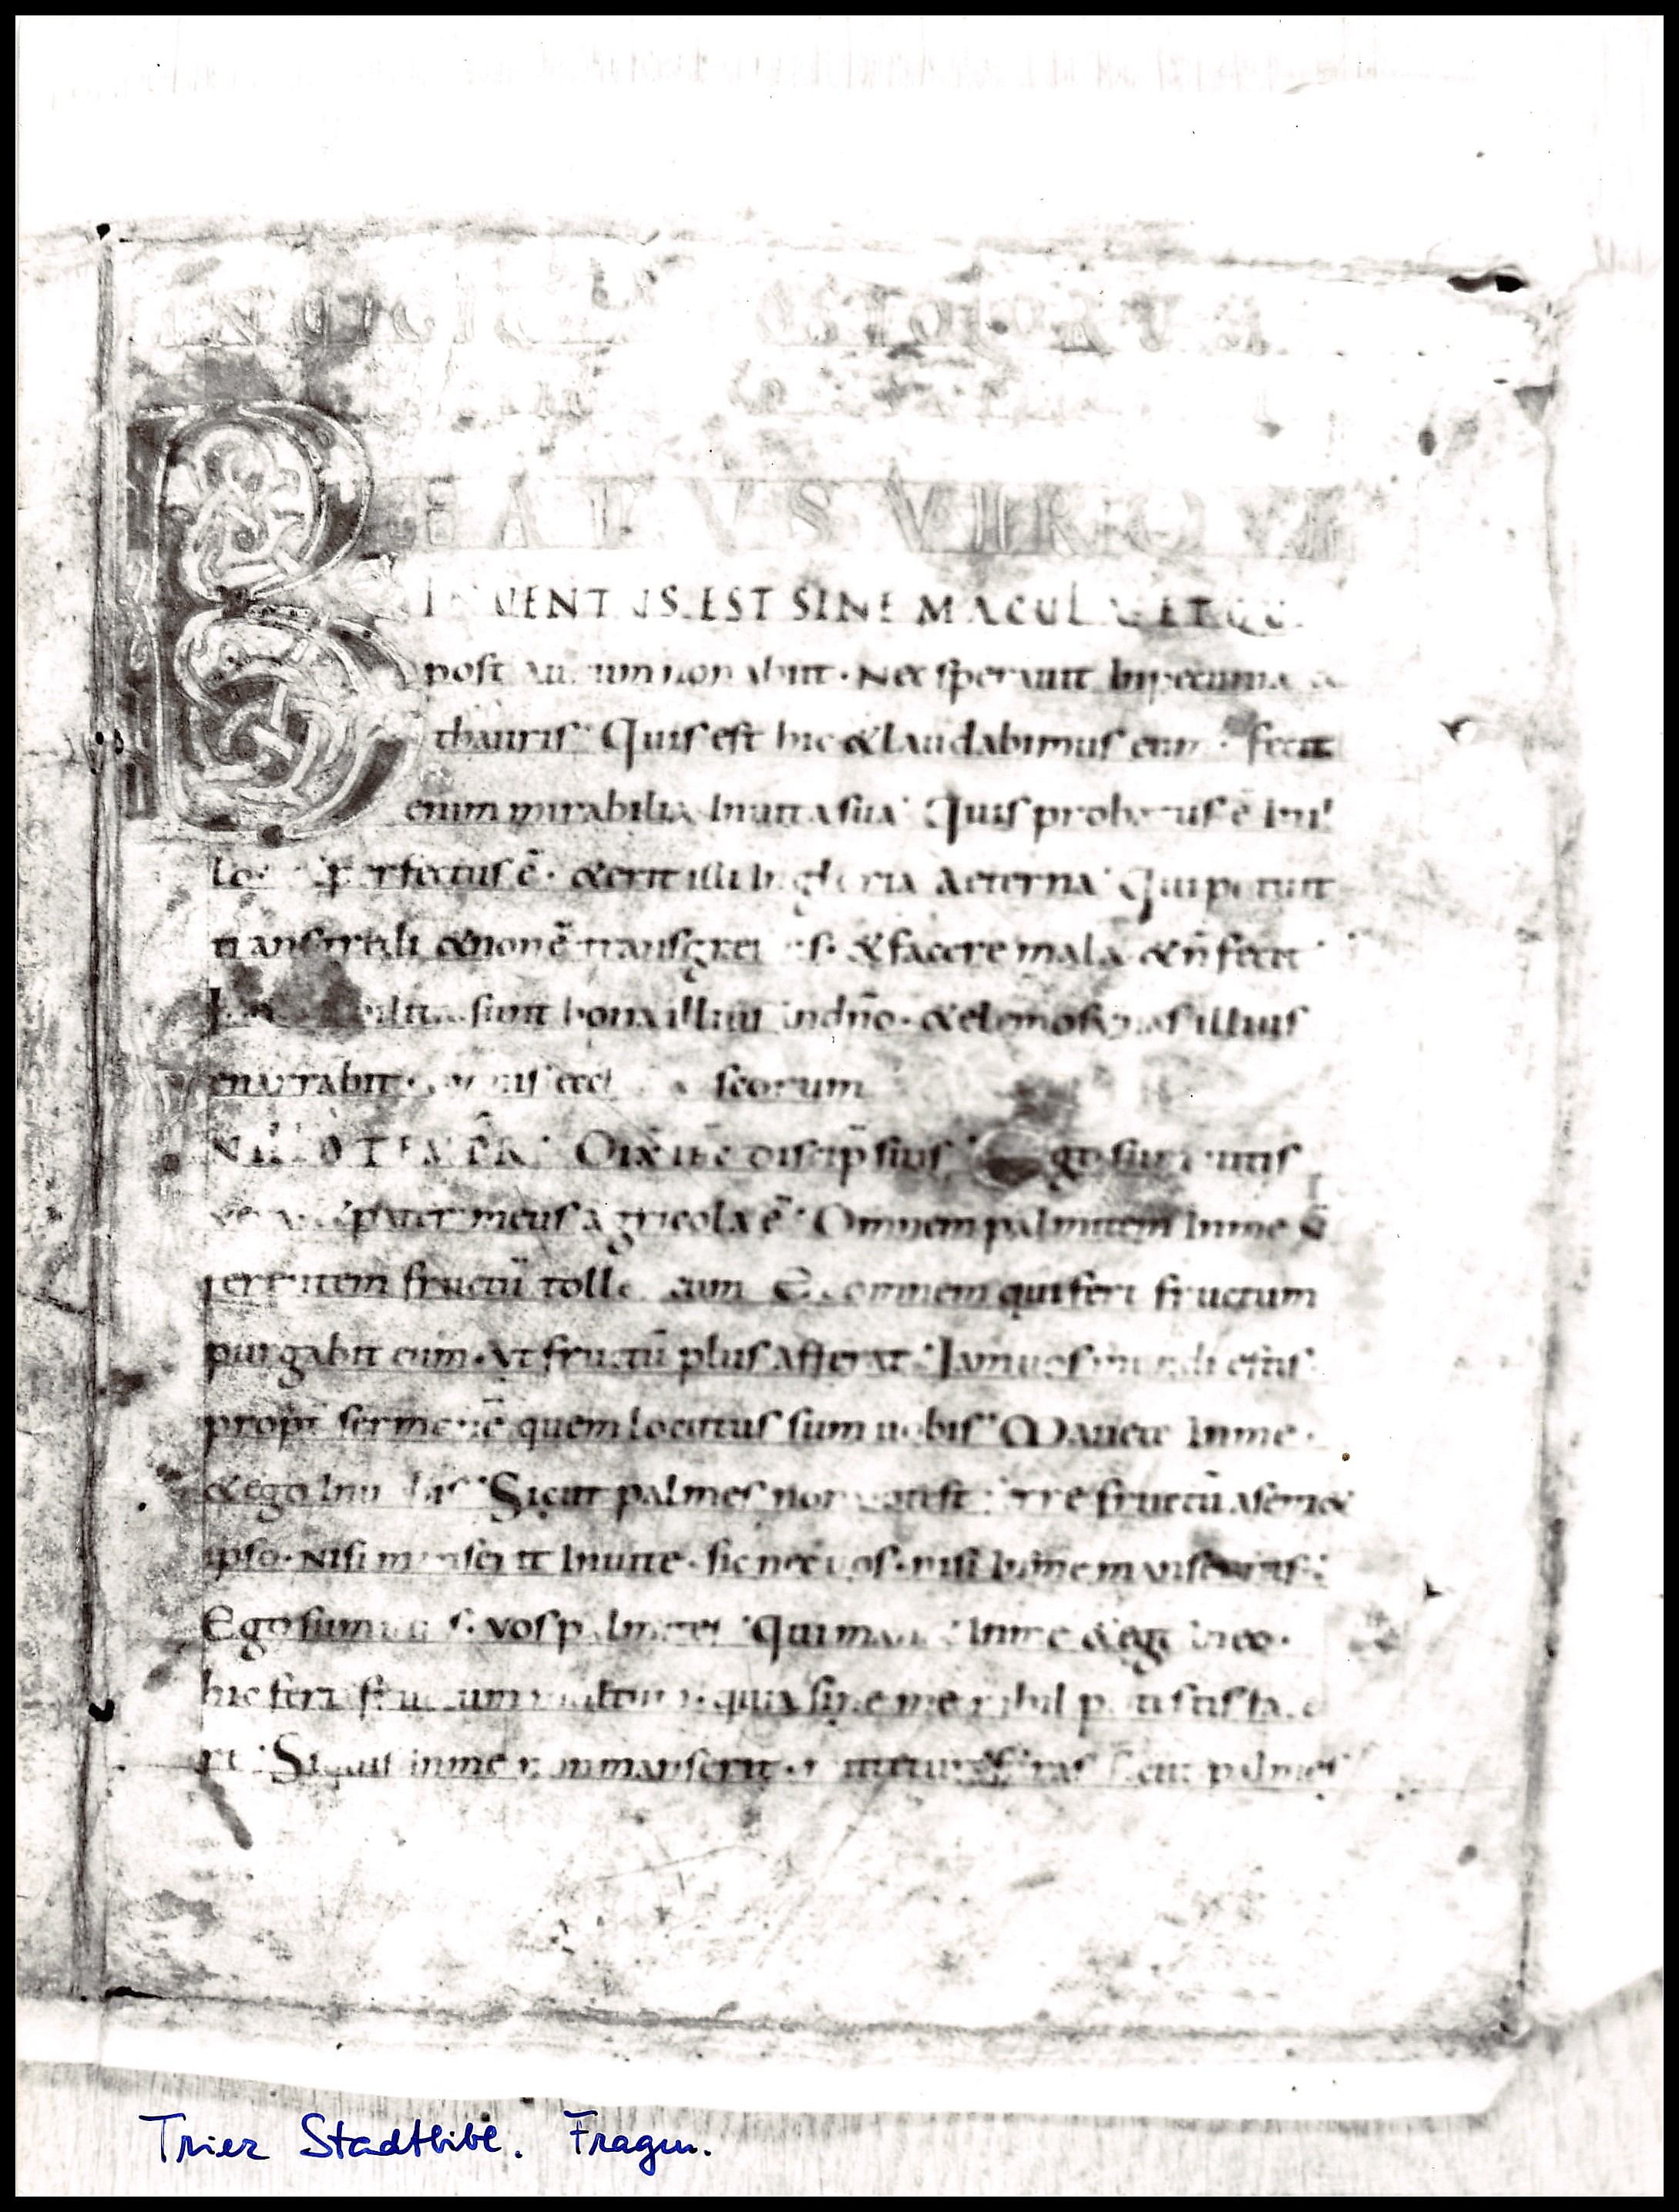 BEATVS VIR QVI
INVENTUS EST SINE MACULA ET QUI
post aurum non abiit · Nec sperauit in pecunia &
thauris · Quis est hic & laudabimus eum · fecit
enim mirabilia in uita sua · Quis probatus ē in il
lo · perfectus ē · & erit illi in gloria aeterna · Qui potuit
transgredi & non ē transgressus · & facere mala & n̄ fecit ·
sunt bona illius in dn̄o · & elemosynas illius
enarrabit · scorum
Dix ih̄c discip̄ suis · Ego sum uitis
pater meus agricola ē · Omnem palmitem in me n̄
ferentem fructū tollet eum Et omnem qui fert fructum
purgabit eum · Vt fructū plus afferat · Iam uos mundi estis ·
propt̄ sermonē quem locutus sum uobis · Manete in me ·
& ego in uobis · Sicut palmes non potest ferre fructū a sem&
ipso · Nisi manserit in uite · sic nec uos · nisi in me manseritis ·
Ego sum uitis · vos palmites · Qui manet in me & ego in eo ·
hic fert fructum multum · quia sine me nihil potestis face
re · Si quis in me non manserit · mittetur foras sicut palmes
Trier Stadtbibl. Fragm.